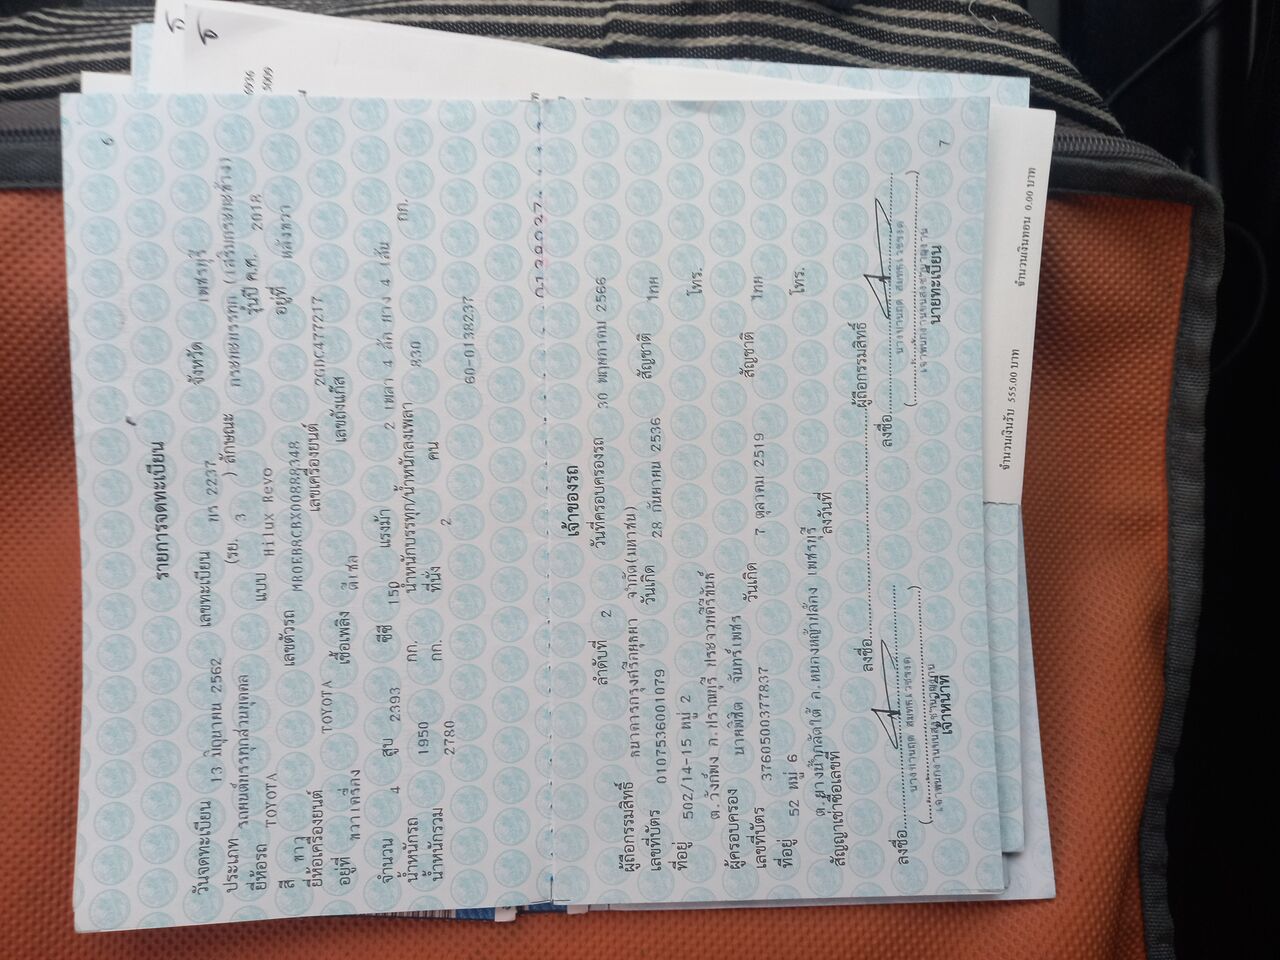 6
รายการจดทะเบียน
วันจดทะเบียน 13 มิถุนายน 2562 เลขทะเบียน 2237 จังหวัด เพชรบุรี
ประเภท รถยนต์บรรทุกส่วนบุคคล (รย. 3 ) ลักษณะ กระบะบรรทุก (เสริมกระบะข้าง)
ยี่ห้อรถ TOYOTA แบบ Hilux Revo รุ่นปี ค.ศ. 2018
สี ขาว เลขตัวรถ อยู่ที่ หลังขวา
ยี่ห้อเครื่องยนต์ TOYOTA เลขเครื่องยนต์ 2GDC477217
อยู่ที่ ขวาเครื่อง เชื้อเพลิง ดีเซล เลขถังแก๊ส
จำนวน 4 สูบ 2393 ซีซี 150 แรงม้า 2 เพลา 4 ล้อ ยาง 4 เส้น
น้ำหนักรถ 1950 กก. น้ำหนักบรรทุก/น้ำหนักลงเพลา 830 กก.
น้ำหนักรวม 2780 กก. ที่นั่ง 2 คน
60-0138237
เจ้าของรถ
ลำดับที่ 2 วันที่ครอบครองรถ 30 พฤษภาคม 2566
ผู้ถือกรรมสิทธิ์ ธนาคารกรุงศรีอยุธยา จำกัด(มหาชน)
เลขที่บัตร 0107536001079 วันเกิด 28 กันยายน 2536 สัญชาติ ไทย
ที่อยู่ 502/14-15 หมู่ 2 โทร.
ต.วังก์พง อ.ปราณบุรี ประจวบคีรีขันธ์
ผู้ครอบครอง นายพิชิต จันทร์เพชร
เลขที่บัตร 3760500377837 วันเกิด 7 ตุลาคม 2519 สัญชาติ ไทย
ที่อยู่ 52 หมู่ 6 โทร.
ต.ยางน้ำกลัดใต้ อ.หนองหญ้าปล้อง เพชรบุรี
สัญญาเช่าซื้อเลขที่ ลงวันที่
ลงชื่อ ผู้ถือกรรมสิทธิ์
ลงชื่อ ลงชื่อ
เจ้าพนักงานขนส่งชำนาญงาน เจ้าพนักงานขนส่งชำนาญงาน
เจ้าหน้าที่ นายทะเบียน
7
จำนวนเงินรับ 555.00 บาท จำนวนเงินทอน 0.00 บาท